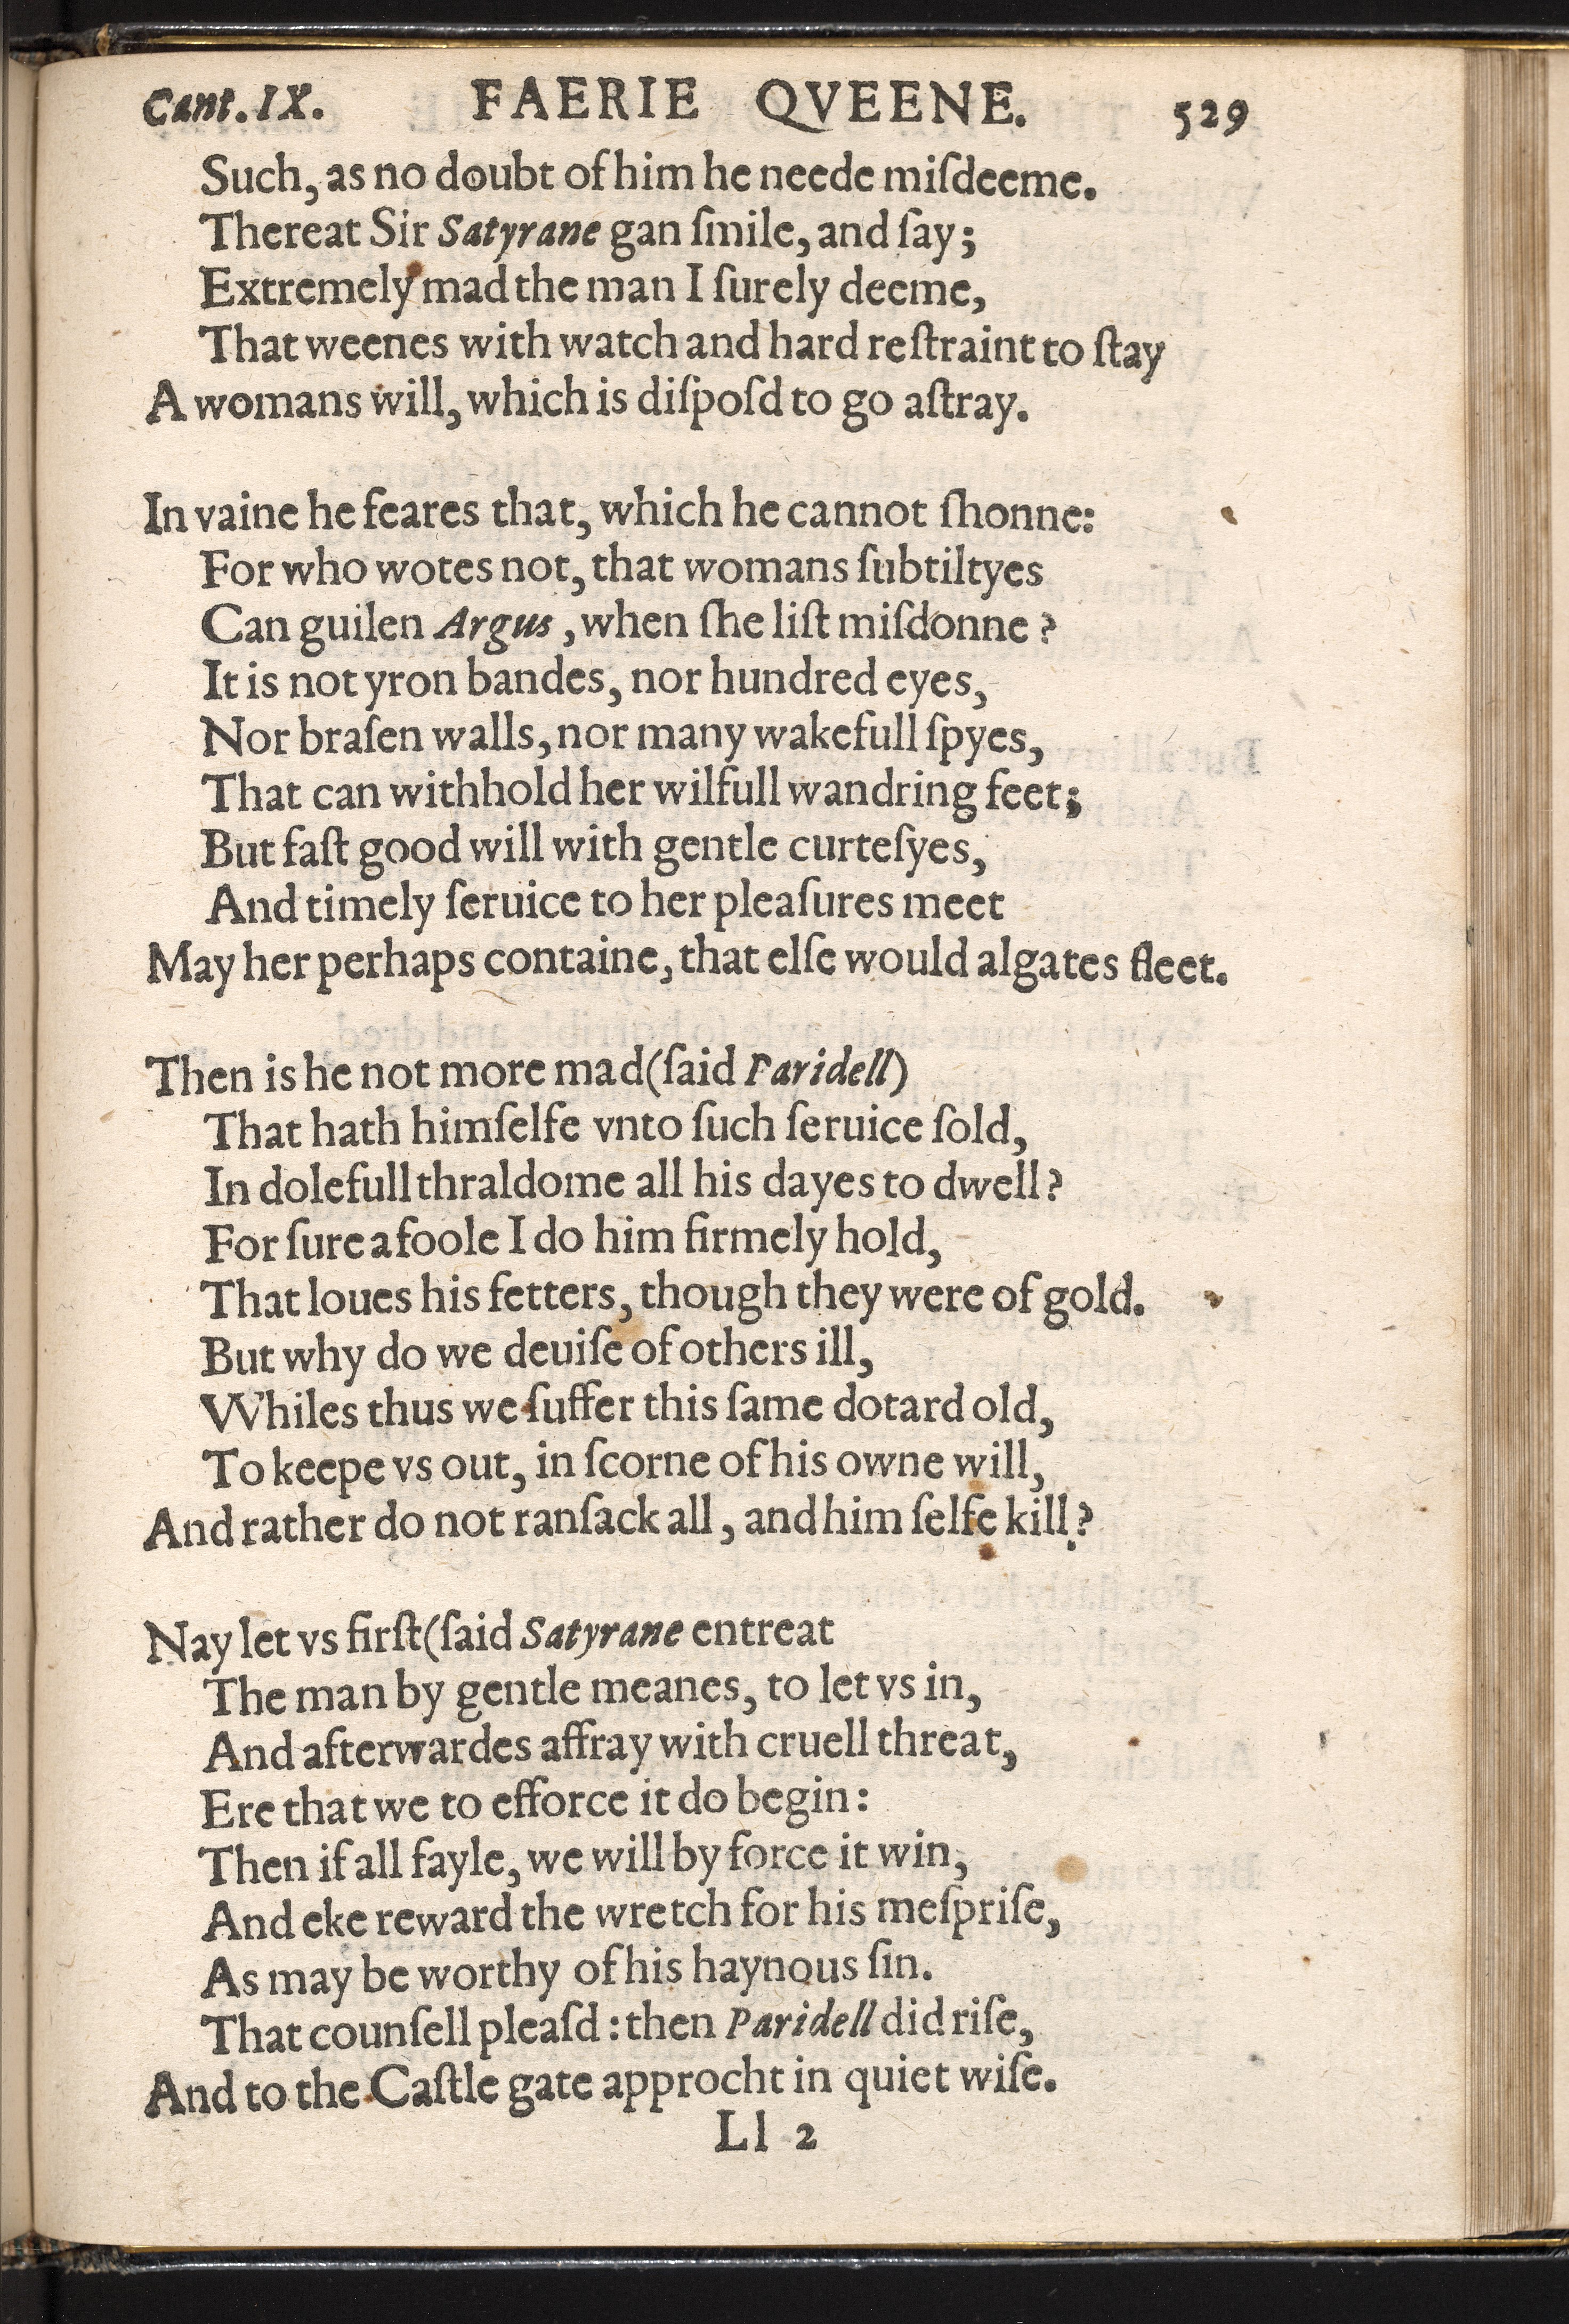 Cant. IX. FAERIE QVEENE. 529
Such, as no doubt of him he neede miſdeeme.
Thereat Sir Satyrane gan ſmile, and ſay;
Extremely mad the man I ſurely deeme,
That weenes with watch and hard reſtraint to ſtay
A womans will, which is diſpoſd to go aſtray.

In vaine he feares that, which he cannot ſhonne:
For who wotes not, that womans ſubtiltyes
Can guilen Argus, when ſhe liſt miſdonne?
It is not yron bandes, nor hundred eyes,
Nor braſen walls, nor many wakefull ſpyes,
That can withhold her wilfull wandring feet;
But faſt good will with gentle curteſyes,
And timely ſeruice to her pleaſures meet
May her perhaps containe, that elſe would algates fleet.

Then is he not more mad (ſaid Paridell)
That hath himſelfe vnto ſuch ſeruice ſold,
In dolefull thraldome all his dayes to dwell?
For ſure a foole I do him firmely hold,
That loues his fetters, though they were of gold.
But why do we deuiſe of others ill,
Whiles thus we ſuffer this ſame dotard old,
To keepe vs out, in ſcorne of his owne will,
And rather do not ranſack all, and him ſelfe kill?

Nay let vs firſt (ſaid Satyrane entreat
The man by gentle meanes, to let vs in,
And afterwardes affray with cruell threat,
Ere that we to efforce it do begin:
Then if all fayle, we will by force it win,
And eke reward the wretch for his meſpriſe,
As may be worthy of his haynous ſin.
That counſell pleaſd: then Paridell did riſe,
And to the Caſtle gate approcht in quiet wiſe.
Ll 2